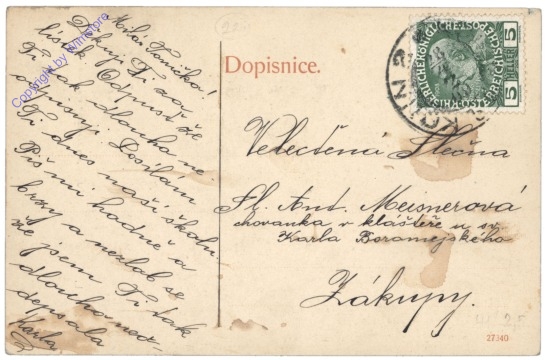 Milá Tonička!
Děkuji Ti za
lístek. Odpusť že
Ti tak dlouho ne-
odpisuji. Posílám
Ti dnes naší školu.
Piš mi hodně a
brzy a nezlob se
že jsem Ti tak
dlouho neo-
depsala
Karla
Copyright by Wihlstore
Dopisnice.
Velectěná Slečna
Sl. Ant. Meisnerová
chovanka v klášteře u sv.
Karla Boromejského
Zákupy.
5 HELLER 5
KAISERLICHE KÖNIGLICHE ÖSTERREICHISCHE POST
27340